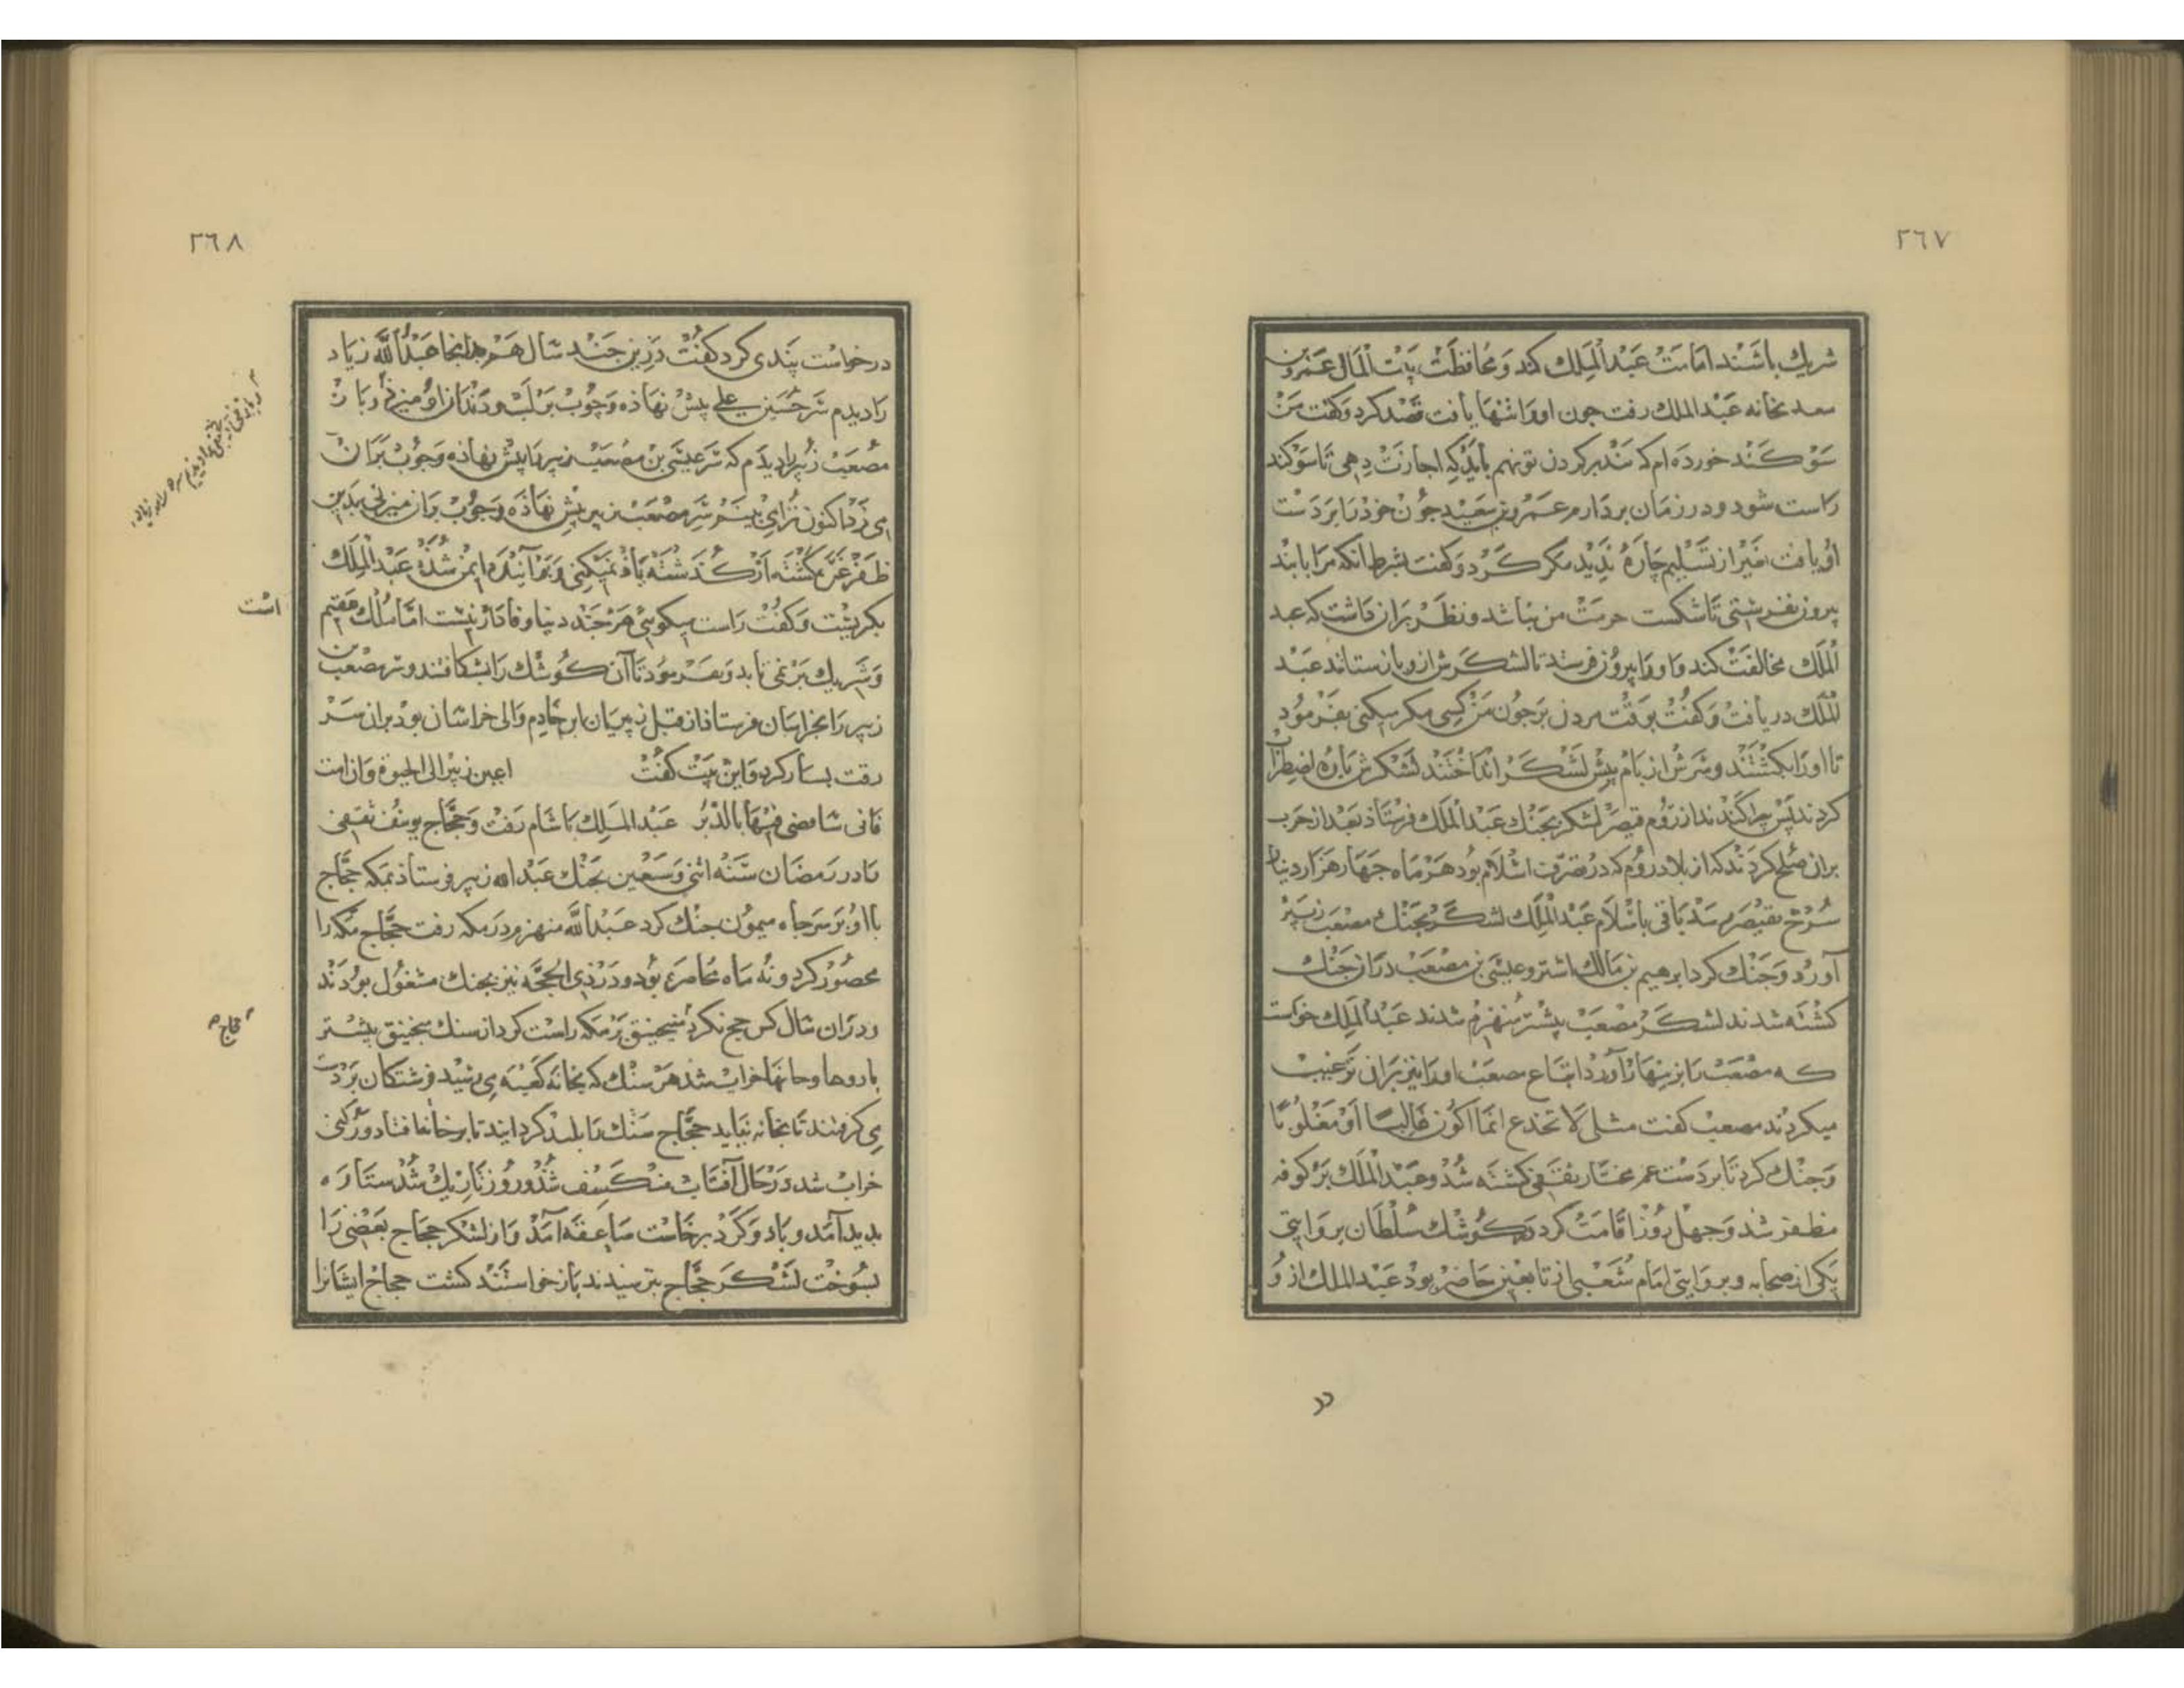 ٢٦٧
شریك باشند امامت عَبْدالمَلِك کند وَمحافظَتْ بَیْت المَال عَمْرو بن
سعد بخانه عَبْدالملك رفت جون اورا تنها یافت قصْد کرد وَکفت مَنْ
سَوْکَنْد خورده ام که بَنْد بر کردن تو نهم بایَذ که اجازتْ دِهی تَا سَوْکند
رَاست شود و در زمان بردارم عَمْرو بن سَعِید جُوْن خوْذ رَا بَردَسْت
اوُ یافت غیْر از تَسْلیم جَارهٔ نَدِیْد مکر کَرْد وَکفت بشرط انکه مرَا با بند
بیرون نفرستی تا شکست حرمتْ من نباشد ونظَر بَران داشت که عبد
المَلِك مخالفَتْ کند وَاورا بیروُن فرستد تا لشکَرش ازو باز ستانند عَبْد
المَلك دریافت وَکفْتْ بوقْت مردن بَر جُون مَن کسی مکر میکنی بفَرْموُد
تا اورَا بکشْتند وسَرشْ از بام پیش لَشْکَر انْداخْتند لَشْکرش بَارهٔ اضطِرَاب
کردند پس پراکَنْدند از رَوُم قیصَر لشکر بجَنْك عَبْدالمَلك فرستَاذ بَعْد از حَرب
بران صُلح کردَنْد که از بلاد روُم که در تصَرّف اسْلام بوُد هَرْ مَاه جَهَار هزَار دینار
سُرخ بقیْصَر رسَد باقی باسْلَام عَبْدالمَلِك لشکَر بجَنْك مصْعَب زُبَیْر
آورْد وَجَنْك کرد ابرهیم بن مَالك اشتر وعیسَی بن مصْعَبْ دران جَنْك
کشْته شدند لشکَر مُصْعَبْ بیشتر مُنهزمْ شدند عَبْدالمَلِك خواست
که مصْعَبْ رَا بزینهَار آورَد اتبَاع مصعَب اورَا نیز بَران تَرغیبْ
میکردْند مصعبْ کفت مثلی لَا تخدع انمَا اکوُن غَالبًا اوْ مَغْلُوبًا
وَجنْك کرد تَا بر دَسْت عمر مختَار ثقَفی کشتَه شُدْ وعَبْدالمَلك بَر کوفه
مظفر شذ وَجهل روُز اقَامَتْ کرد وَدر کوُشك سُلْطَان بروَایتی
یکی از صحابه وبروَایتی امَام شُعَبی از تابعین حَاضرْ بوذ عَبْدالملك از وُ
٢٦٨
درخواسْت پَندی کرد کفتْ درین جَنْد سَال هَم بدانجا عَبْدالله زیاد
رَا دیدم سَر حُسَین علی پیشْ نهاذه وَجُوب بَر لَب ودَندَان اوُ میزد وباز
مصْعَب زُبَیر را دیدَم که سَر عیسَی بن مصْعَب زبیر را پیش نهاذه وَجُوب بَران
می زَد اکنون تُرا می بینم سَر مصْعَب زبیر پیش نهَاذَه وَجُوبْ بران میزنی بدین
ظفر غرّه مکَشْته از کُذَشته یاذ نمیکنی وَبَر آینْده ایمن شُذهٔ عَبْدالمَلِك
بکریسْت وَکفْتْ رَاست میکوئی هَرْ جَنْد دنیا وفادار نیسْت امّا مُلك عَقیم
است
وَشَریك بَر نمی تابد وَبفَرموُد تَا آن کوُشْك رَا بشکافتند وسَر مصْعَب بن
زبیر رَا بخراسَان فرستاذ از قبل زبیریان ابن خَادِم وَالی خراسَان بوْد بران سَر
رقت بسیار کرد وَاین بَیْتْ کفْتْ اعین زبیر الی الحیوة وَان امت
فانی سَامضی فیْهَا بالدُّبْر عَبْدالمَلِك با شَام رفْتْ وَحجَّاج یوسُف ثَقفی
رَا در رَمضَان سَنْه اثنی وَسَبْعین بجَنْك عَبْدالله زبیر فرستاذ بمَکه حجَّاج
با اوُ بر سَر جاه میموُن جنْك کرد عَبْدالله منهزم در مکه رفت حجَّاج مَکه رَا
محصُوْر کرد ونُه مَاه محاصره بوُد ودَر ذی الحجَّة نیز بجنك مشغوُل بوُدَند
ودرَان سَال کس حج نکرد منجنیق بَر مکه راسْت کرد از سنك منجنیق بیشْتر
حجاج
باروها وخانها خراب شذ هَر سَنْك که بخانه کعْبَه می رسید فرشتکان بَر دسْت
می کرفتند تا بخانه نیاید حجَّاج سَنْك رَا بلند کردانید تا بر خانها فتاد ورُکنی
خراب شد در حَال آفتاب منکَسف شُذ وروُز تَاریك شُذ سَتَاره
بدید آمَد وباد وَکَرد برخاسْت صَاعقَه آمَذ وَاز لشکر حجاج بَعْضی رَا
بسُوخْت لَشْکَر حجَّاج بترسیدند باز خواستند کشت حجاج ایشَانرا